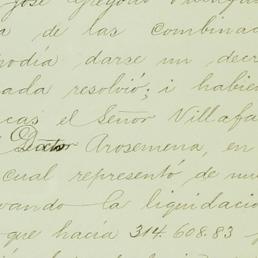 José Gregorio
a de las Combinac
podía darse un decr
ada resolvió; i habien
cas el Señor Villafa
Doctor Arosemena, en
cual representó de nu
vando la liquidació
que hacía 314.608.83 y